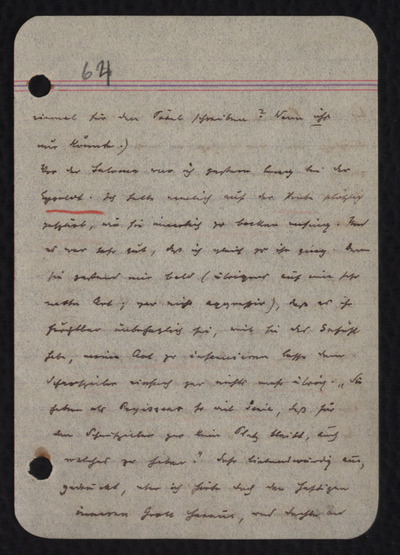 64
einmal für den Padel schreiben? Wenn ich
nur könnte.)
Vor der Salome war ich gestern lang bei der
Eysoldt. Ich hatte neulich auf der Probe plötzlich
gespürt, wie sie innerlich zu bocken anfing. Und
es war sehr gut, daß ich gleich zu ihr ging. Denn
sie gestand mir bald (übrigens auf eine sehr
nette Art; gar nicht aggressiv), daß es ihr
furchtbar unbehaglich sei, mit bei der
habe, meine Art zu inszenieren lasse dem
Schauspieler einfach gar nichts mehr übrig. „Sie
haben als Regisseur so viel Genie, daß für
den Schauspieler gar kein Platz bleibt, auch
welches zu haben." Sehr liebenswürdig aus-
gedrückt, aber ich hörte doch den heftigen
inneren Groll heraus, und dachte an